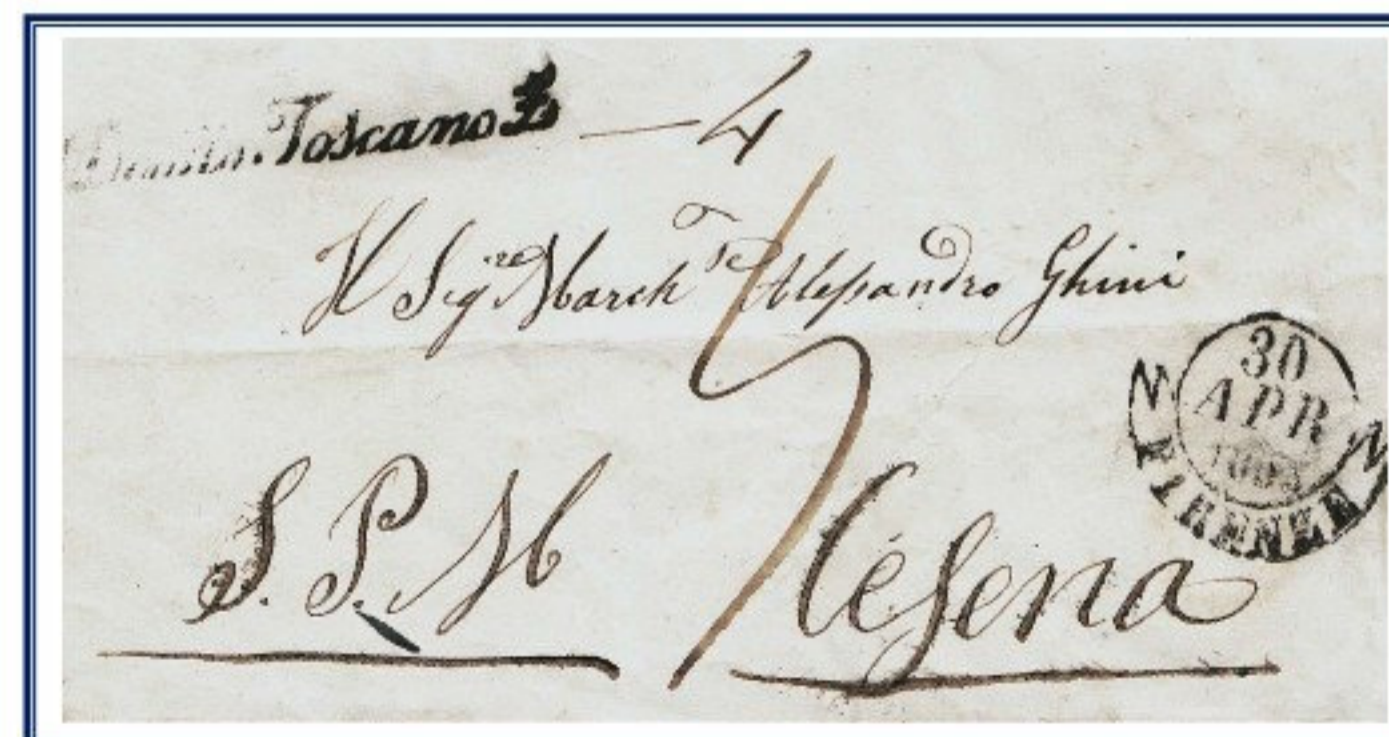 Toscano £ — 4
Sig.re March.se Alessandro Ghini
30
APR
FIRENZE
S. P. M
Cesena